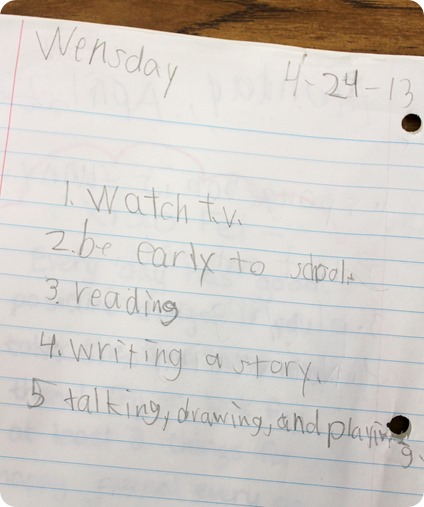 Wensday 4-24-13
1. Watch t.v.
2. be early to school.
3. reading
4. writing a story.
5 talking, drawing, and playing.